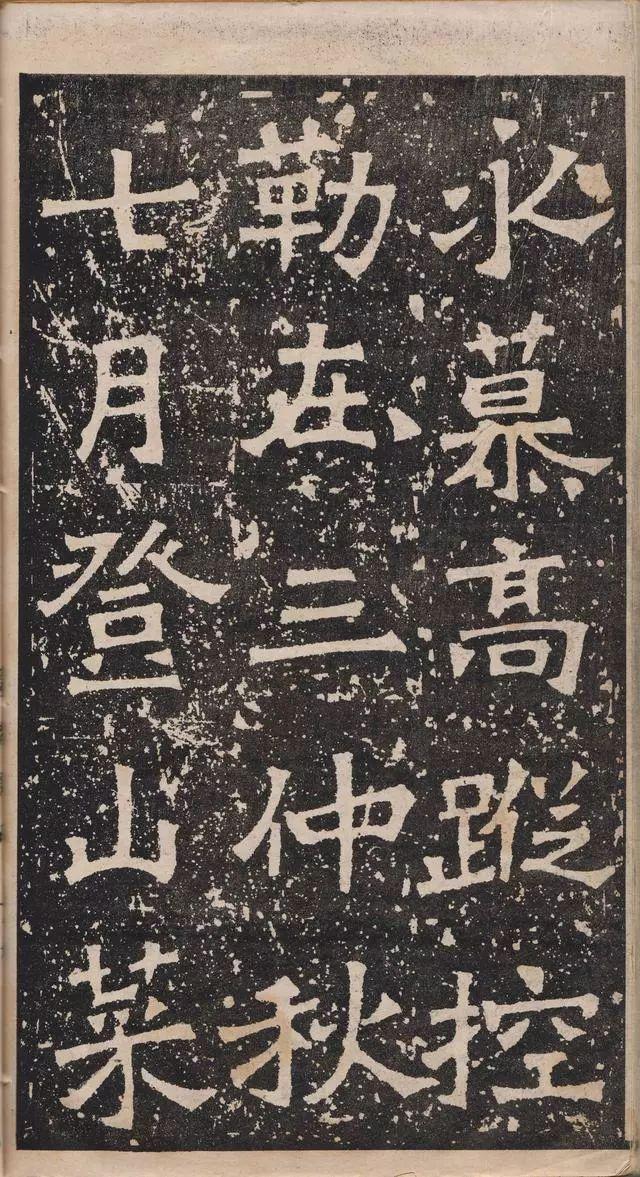 永慕高蹤控
勒在三仲秋
七月登山菜